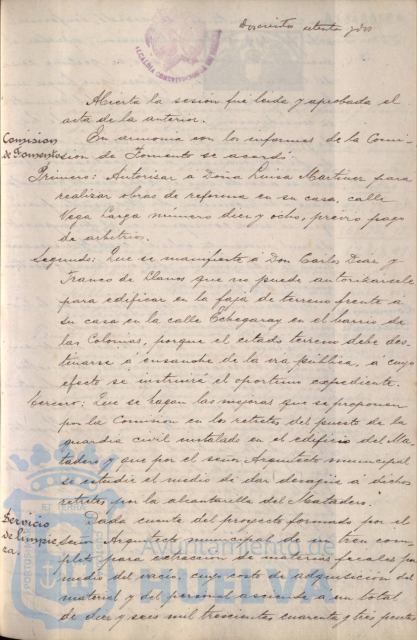 Doscientos setenta y dos
ALCALDIA CONSTITUCIONAL DE HUELVA
Abierta la sesión fué leida y aprobada el
acta de la anterior.
Comision
de Fomento
En armonia con los informes de la Comi-
sion de Fomento se acordó:
Primero: Autorisar a Doña Luisa Martinez para
realizar obras de reforma en su casa, calle
Vega Larga número diez y ocho, previo pago
de arbitrios.
Segundo: Que se manifieste a Don Carlos Diaz y
Franco de Llanos que no puede autorizarsele
para edificar en la faja de terreno frente a
su casa en la calle Echegaray en el barrio de
las Colonias, porque el citado terreno debe des-
tinarse a ensanche de la via pública, a cuyo
efecto se instruirá el oportuno expediente.
Tercero: Que se hagan las mejoras que se proponen
por la Comision en los retretes del puesto de la
guardia civil instalado en el edificio del Ma-
tadero y que por el señor Arquitecto municipal
se estudie el medio de dar desagüe a dichos
retretes por la alcantarilla del Matadero.
Servicio
de limpie
za.
Dada cuenta del proyecto formado por el
señor Arquitecto municipal de un tren com-
pleto para extraccion de materias fecales por
medio del vacio, cuyo costo de adquisicion del
material y del personal asciende a un total
de diez y seis mil trescientos cuarenta y tres pesetas
Ayuntamiento de
HUELVA